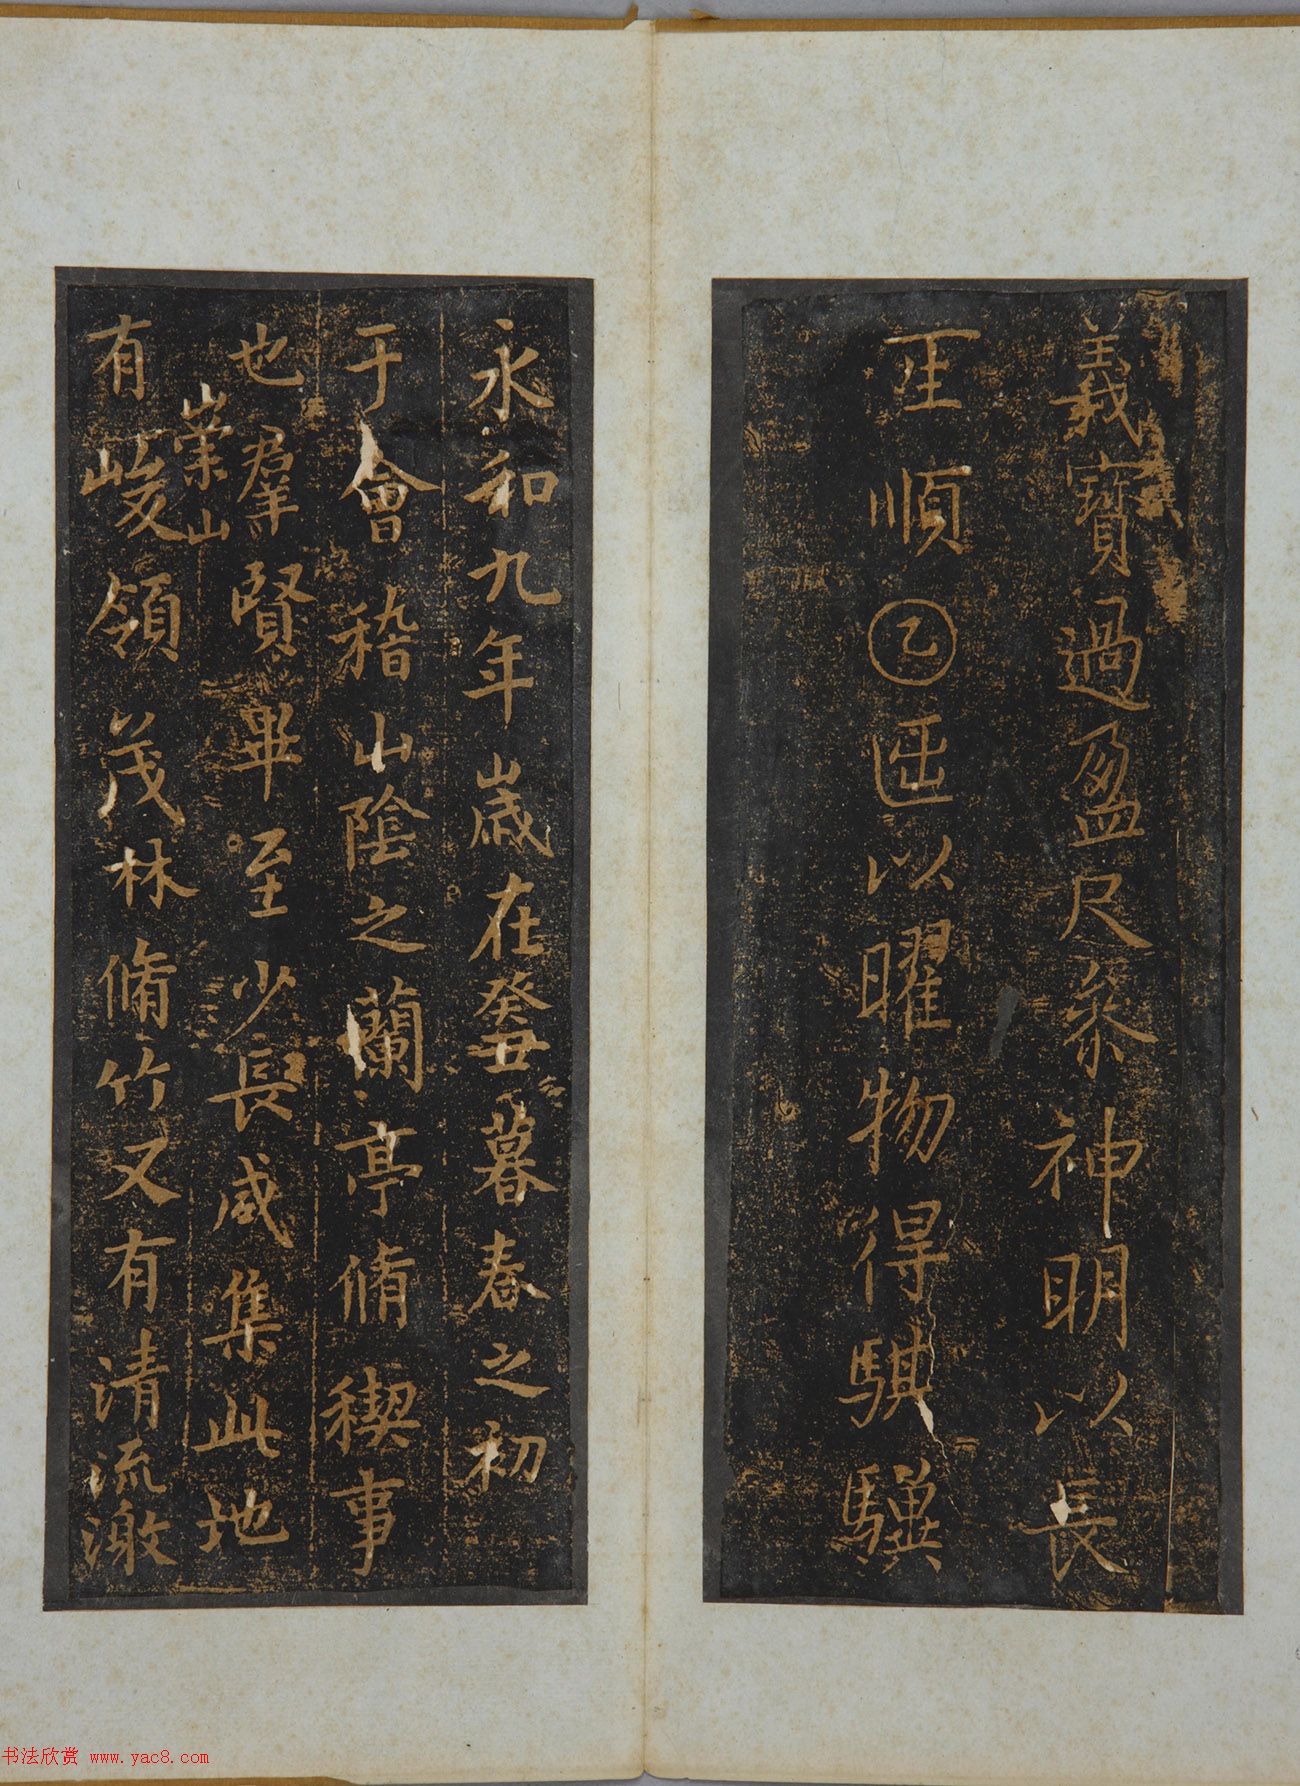 義寶過盈尺參神明以長
王順乙匝以曜物得騏驥
永和九年歲在癸丑暮春之初
于會稽山陰之蘭亭脩稧事
也羣賢畢至少長咸集此地
崇山
有峻領茂林脩竹又有清流激
书法欣赏 www.yac8.com